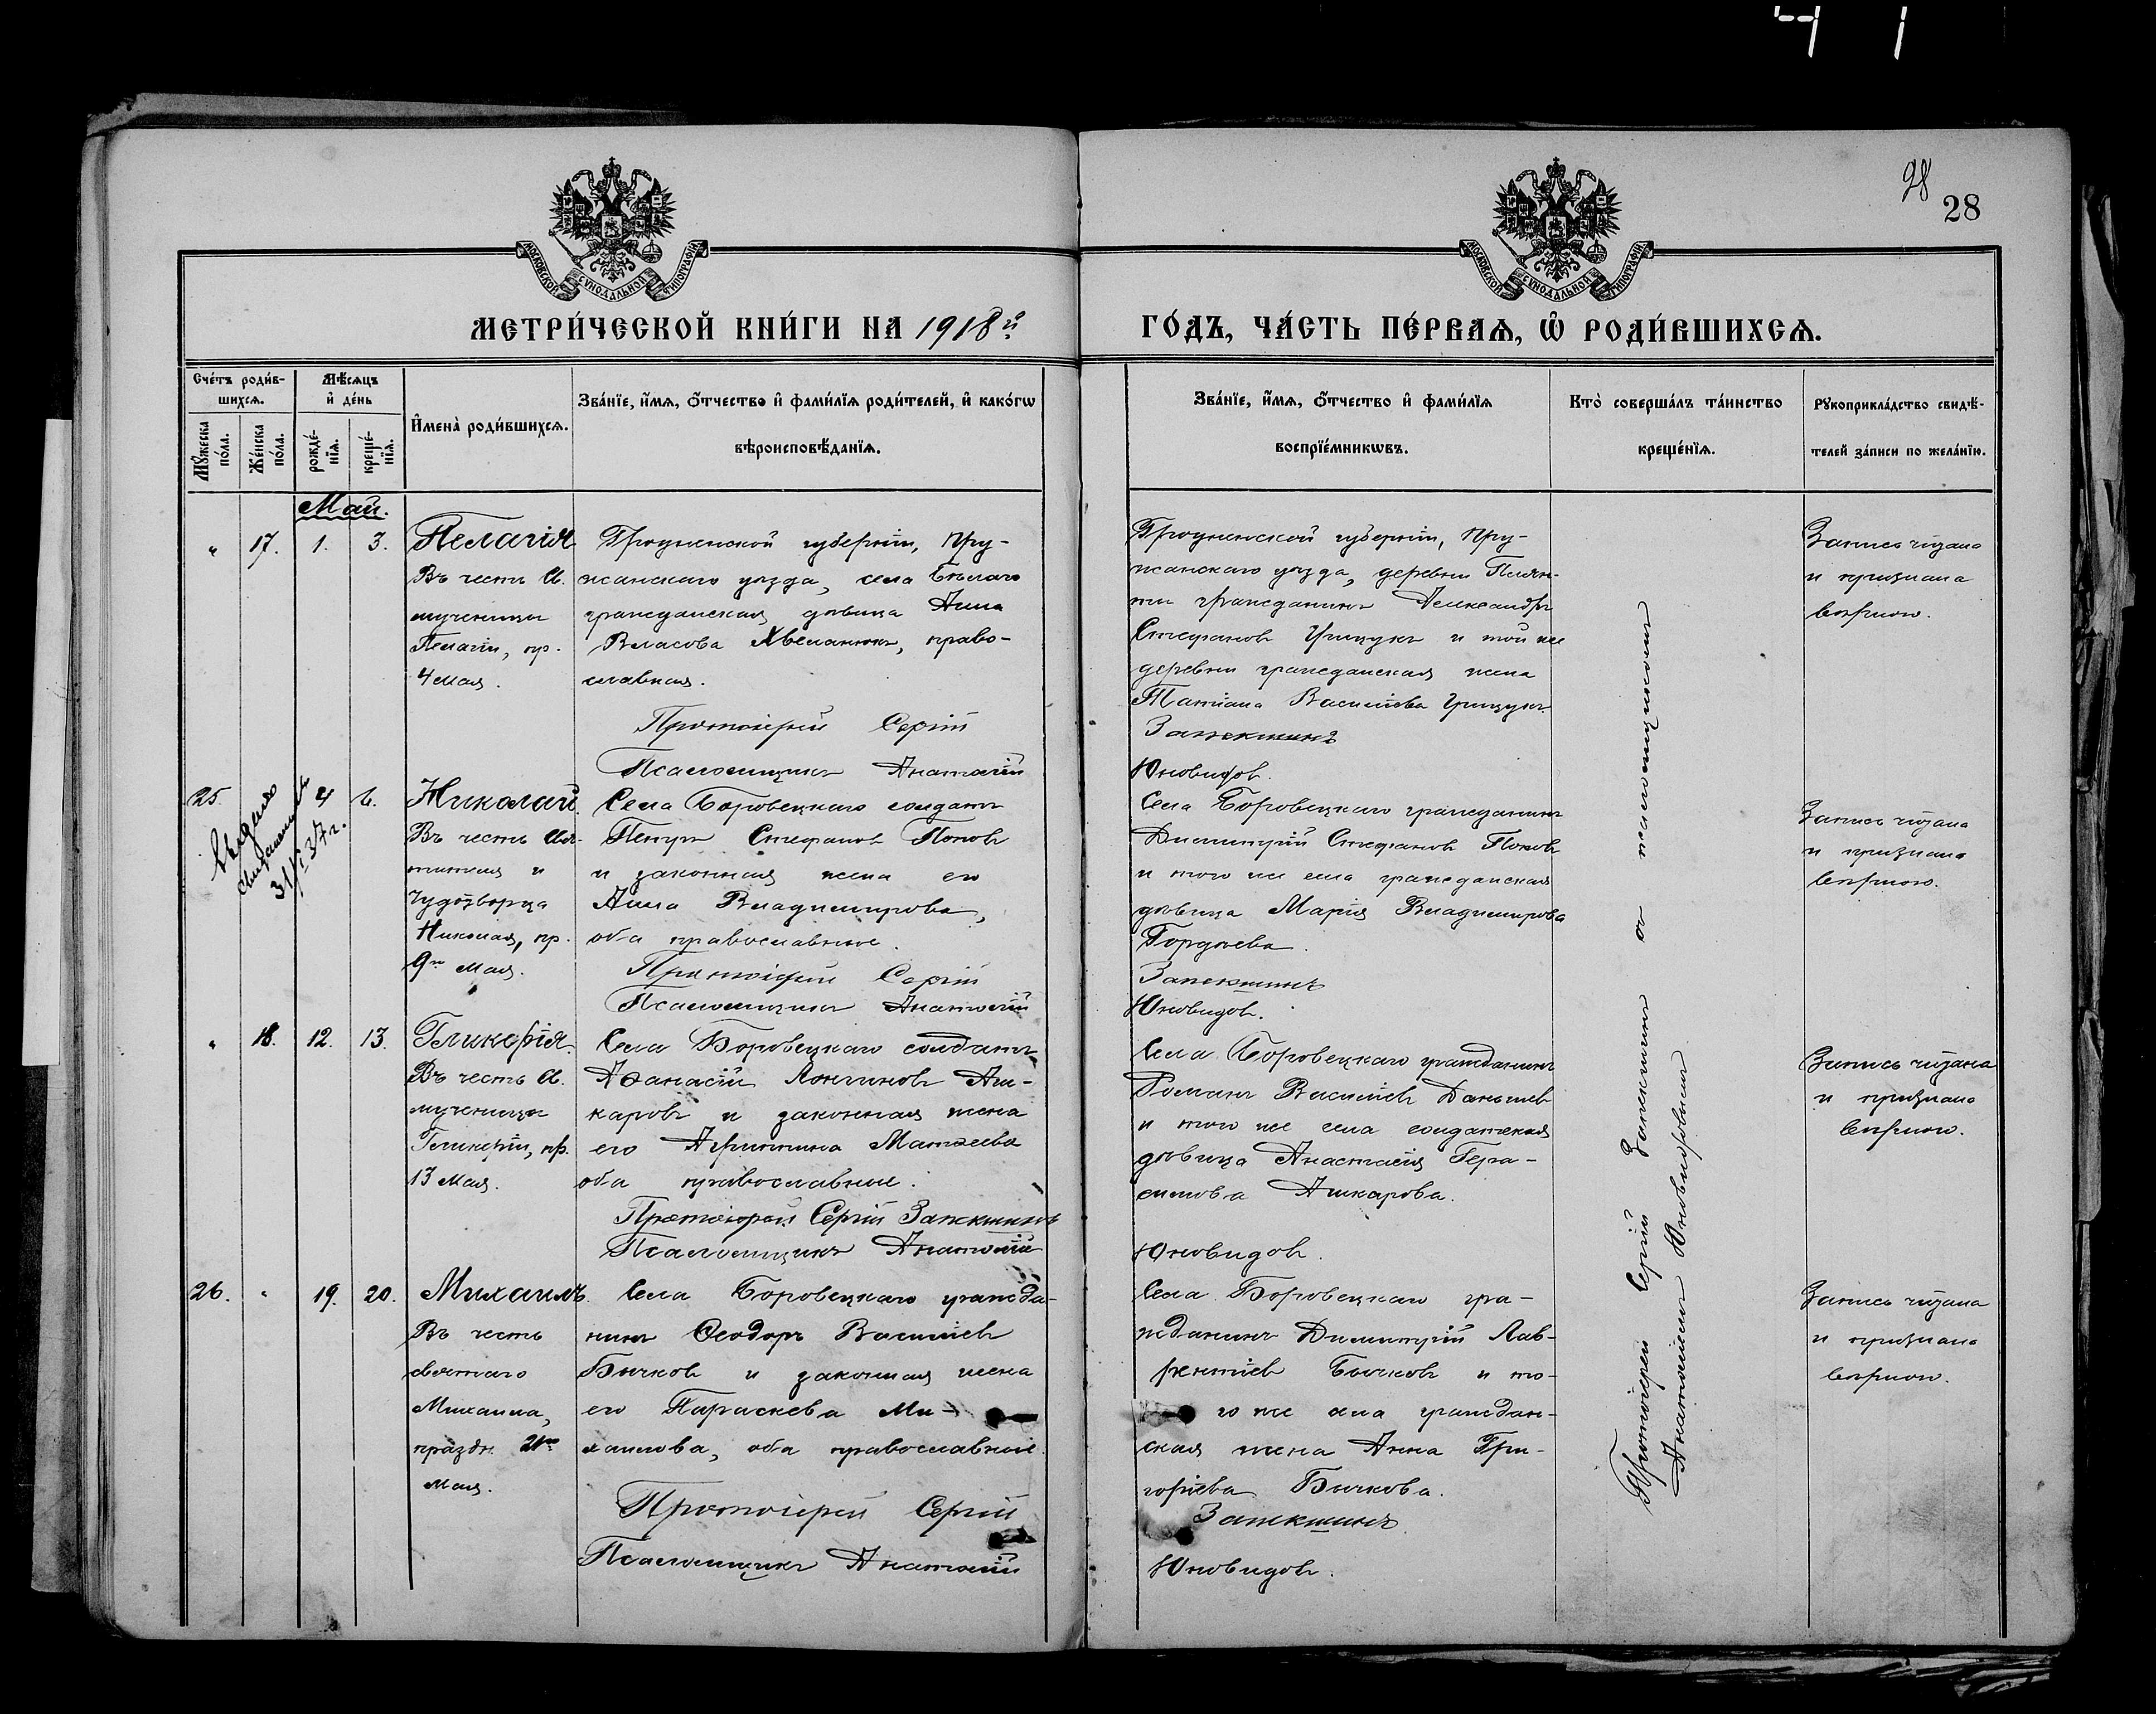 28
28
МОСКОВСКОЙ СѴНОДАЛЬНОЙ ТИПОГРАФІИ
МОСКОВСКОЙ СѴНОДАЛЬНОЙ ТИПОГРАФІИ
МЕТРИ́ЧЕСКОЙ КНИ́ГИ НА 1918й
ГО́ДЪ, ЧА́СТЬ ПЕ́РВАѦ, Ѡ҆ РОДИ́ВШИХСѦ.
Сче́тъ роди́в-
шихсѧ.
Мꙋ́жеска по́ла.
Же́нска по́ла.
Мѣ́сѧцъ
и҆ де́нь
рожде́-
нїѧ.
креще́-
нїѧ.
И҆мена̀ роди́вшихсѧ.
Зва́нїе, и҆́мѧ, ѻ҆́тчество и҆ фами́лїѧ роди́телей, и҆ како́гѡ
вѣроисповѣ́данїѧ.
Зва́нїе, и҆́мѧ, ѻ҆́тчество и҆ фами́лїѧ
воспрїе́мникѡвъ.
Кто̀ соверша́лъ та́инство
креще́нїѧ.
Рꙋкоприкла́дство свидѣ́-
телей за́писи по жела́нїю.
Май.
" 17. 1. 3.
Пелагія
Въ честь св.
мученицы
Пелагіи, пр.
4 мая.
Гродненской губерніи, Пру-
жанскаго уѣзда, села Бѣлаго
гражданская дѣвица Анна
Власова Хвеланюкъ, право-
славная.
Протоіерей Сергій
Псаломщикъ Анатолій
Гродненской губерніи, Пру-
жанскаго уѣзда, деревни
гражданинъ Александръ
Стефановъ Грицукъ и той же
деревни гражданская жена
Татіана Васильева Грицукъ
Запекшинъ
Юновидов.
Запись читана
и признана
вѣрною.
25. 4 6.
Выдано
свидетельство
31/I 37 г.
Николай
Въ честь Свя-
тителя и
Чудотворца
Николая, пр.
9го мая.
Села Боровецкаго солдатъ
Петръ Стефановъ Поповъ
и законная жена его
Анна Владимирова,
оба православные.
Протоіерей Сергій
Псаломщикъ Анатолій
Села Боровецкаго гражданинъ
Димитрій Стефановъ Поповъ
и того же села гражданская
дѣвица Марія Владимирова
Гордѣева.
Запекшинъ
Юновидов.
Запись читана
и признана
вѣрною.
" 18. 12. 13.
Гликерія.
Въ честь св.
мученицы
Гликеріи, пр.
13 мая.
Села Боровецкаго солдатъ
Аѳанасій Лонгиновъ Аш-
каровъ и законная жена
его Агриппина Матѳеева
оба православные.
Протоіерей Сергій Запекшинъ
Псаломщикъ Анатолій
Села Боровецкаго гражданинъ
Романъ Васильевъ
и того же села солдатская
дѣвица Анастасія Гера-
симова Ашкарова.
Юновидовъ.
Запись читана
и признана
вѣрною.
26. " 19. 20.
Михаилъ.
Въ честь
святаго
Михаила,
праздн. 21го
мая.
Села Боровецкаго гражда-
нинъ Ѳеодоръ Васильевъ
Бычковъ и законная жена
его Параскева Ми-
хаилова, оба православные.
Протоіерей Сергій
Псаломщикъ Анатолій
Села Боровецкаго гра-
жданинъ Димитрій Лав-
рентіевъ Бычковъ и то-
го же села граждан-
ская жена Анна Гри-
горіева Бычкова.
Запекшинъ
Юновидовъ.
Запись читана
и признана
вѣрною.
Протоіерей Сергій Запекшинъ съ псаломщикомъ
Анатоліемъ Юновидовымъ